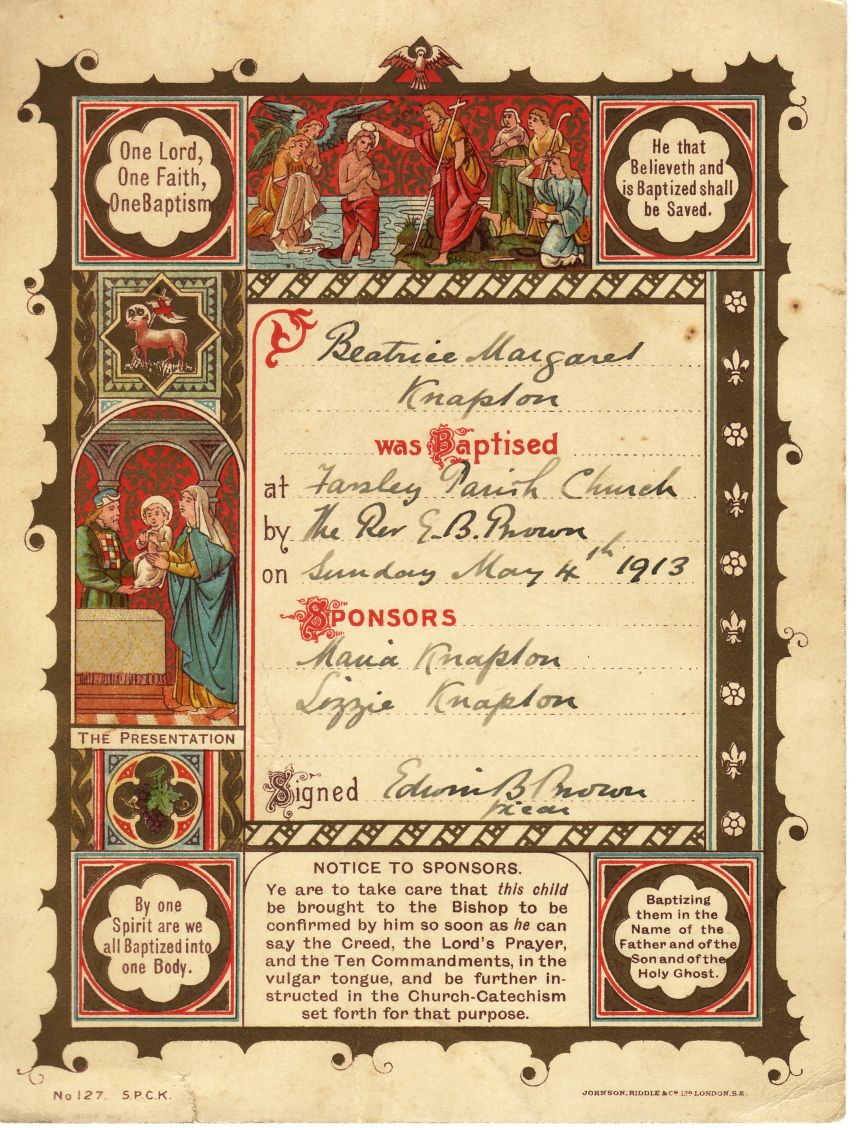 One Lord,
One Faith,
One Baptism
He that
Believeth and
is Baptized shall
be Saved.
Beatrice Margaret
Knapton
was Baptised
at Farsley Parish Church
by The Rev E. B. Brown
on Sunday May 4th 1913
SPONSORS
Maria Knapton
Lizzie Knapton
Signed Edwin B Brown
Vicar
THE PRESENTATION
By one
Spirit are we
all Baptized into
one Body.
NOTICE TO SPONSORS.
Ye are to take care that this child
be brought to the Bishop to be
confirmed by him so soon as he can
say the Creed, the Lord's Prayer,
and the Ten Commandments, in the
vulgar tongue, and be further in-
structed in the Church-Catechism
set forth for that purpose.
Baptizing
them in the
Name of the
Father and of the
Son and of the
Holy Ghost.
No 127. S.P.C.K.
JOHNSON, RIDDLE & Co LTD LONDON, S.E.